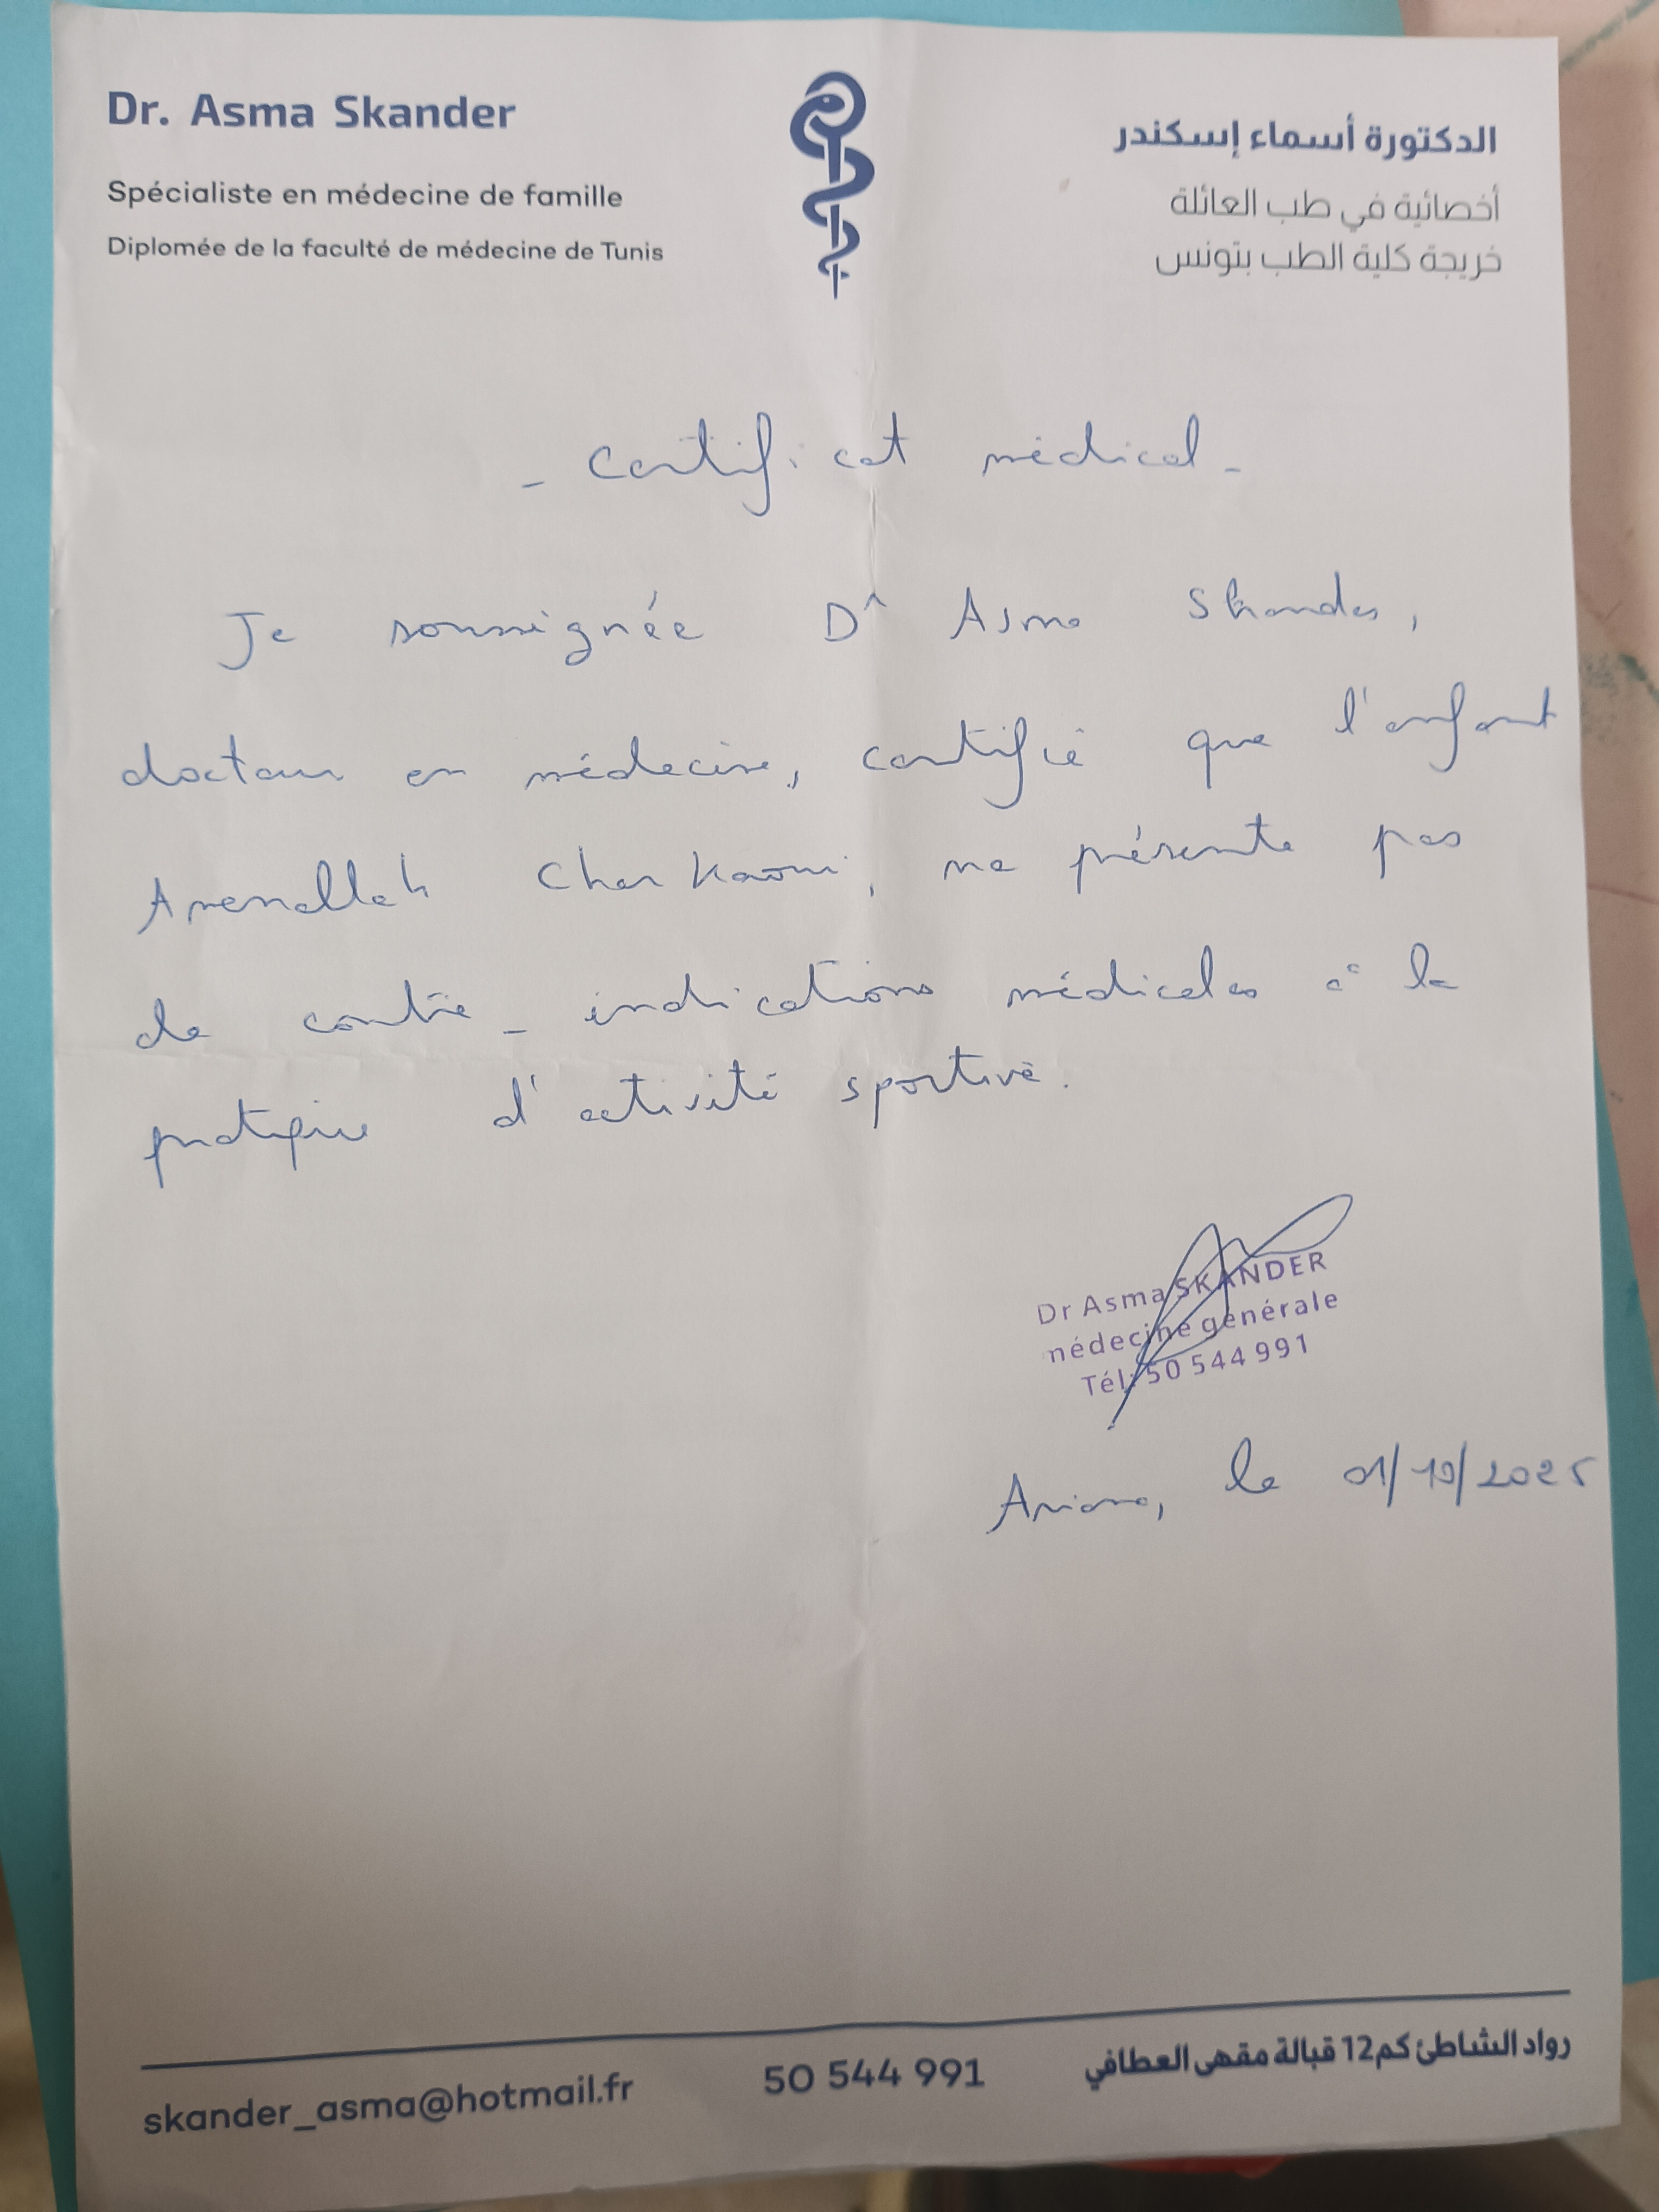 Dr. Asma Skander
Spécialiste en médecine de famille
Diplomée de la faculté de médecine de Tunis
الدكتورة أسماء إسكندر
أخصائية في طب العائلة
خريجة كلية الطب بتونس
- Certificat médical -
Je soussignée Dr Asma Skander,
docteur en médecine, certifie que l'enfant
Amenallah Charkaoui, ne présente pas
de contre-indications médicales à la
pratique d'activité sportive.
Dr Asma SKANDER
médecine générale
Tél: 50 544 991
Ariana, le 01/10/2025
skander_asma@hotmail.fr
50 544 991
رواد الشاطئ كم12 قبالة مقهى العطافي